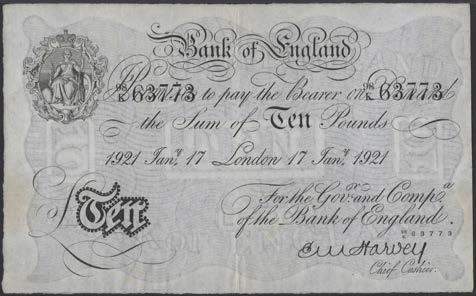 Bank of England
I Promise to pay the Bearer on Demand
98/K 63773 98/K 63773
the Sum of Ten Pounds
1921 Jany. 17 London 17 Jany. 1921
For the Govr. and Compa.
of the Bank of England.
£Ten
98/K 63773
E M Harvey
Chief Cashier.